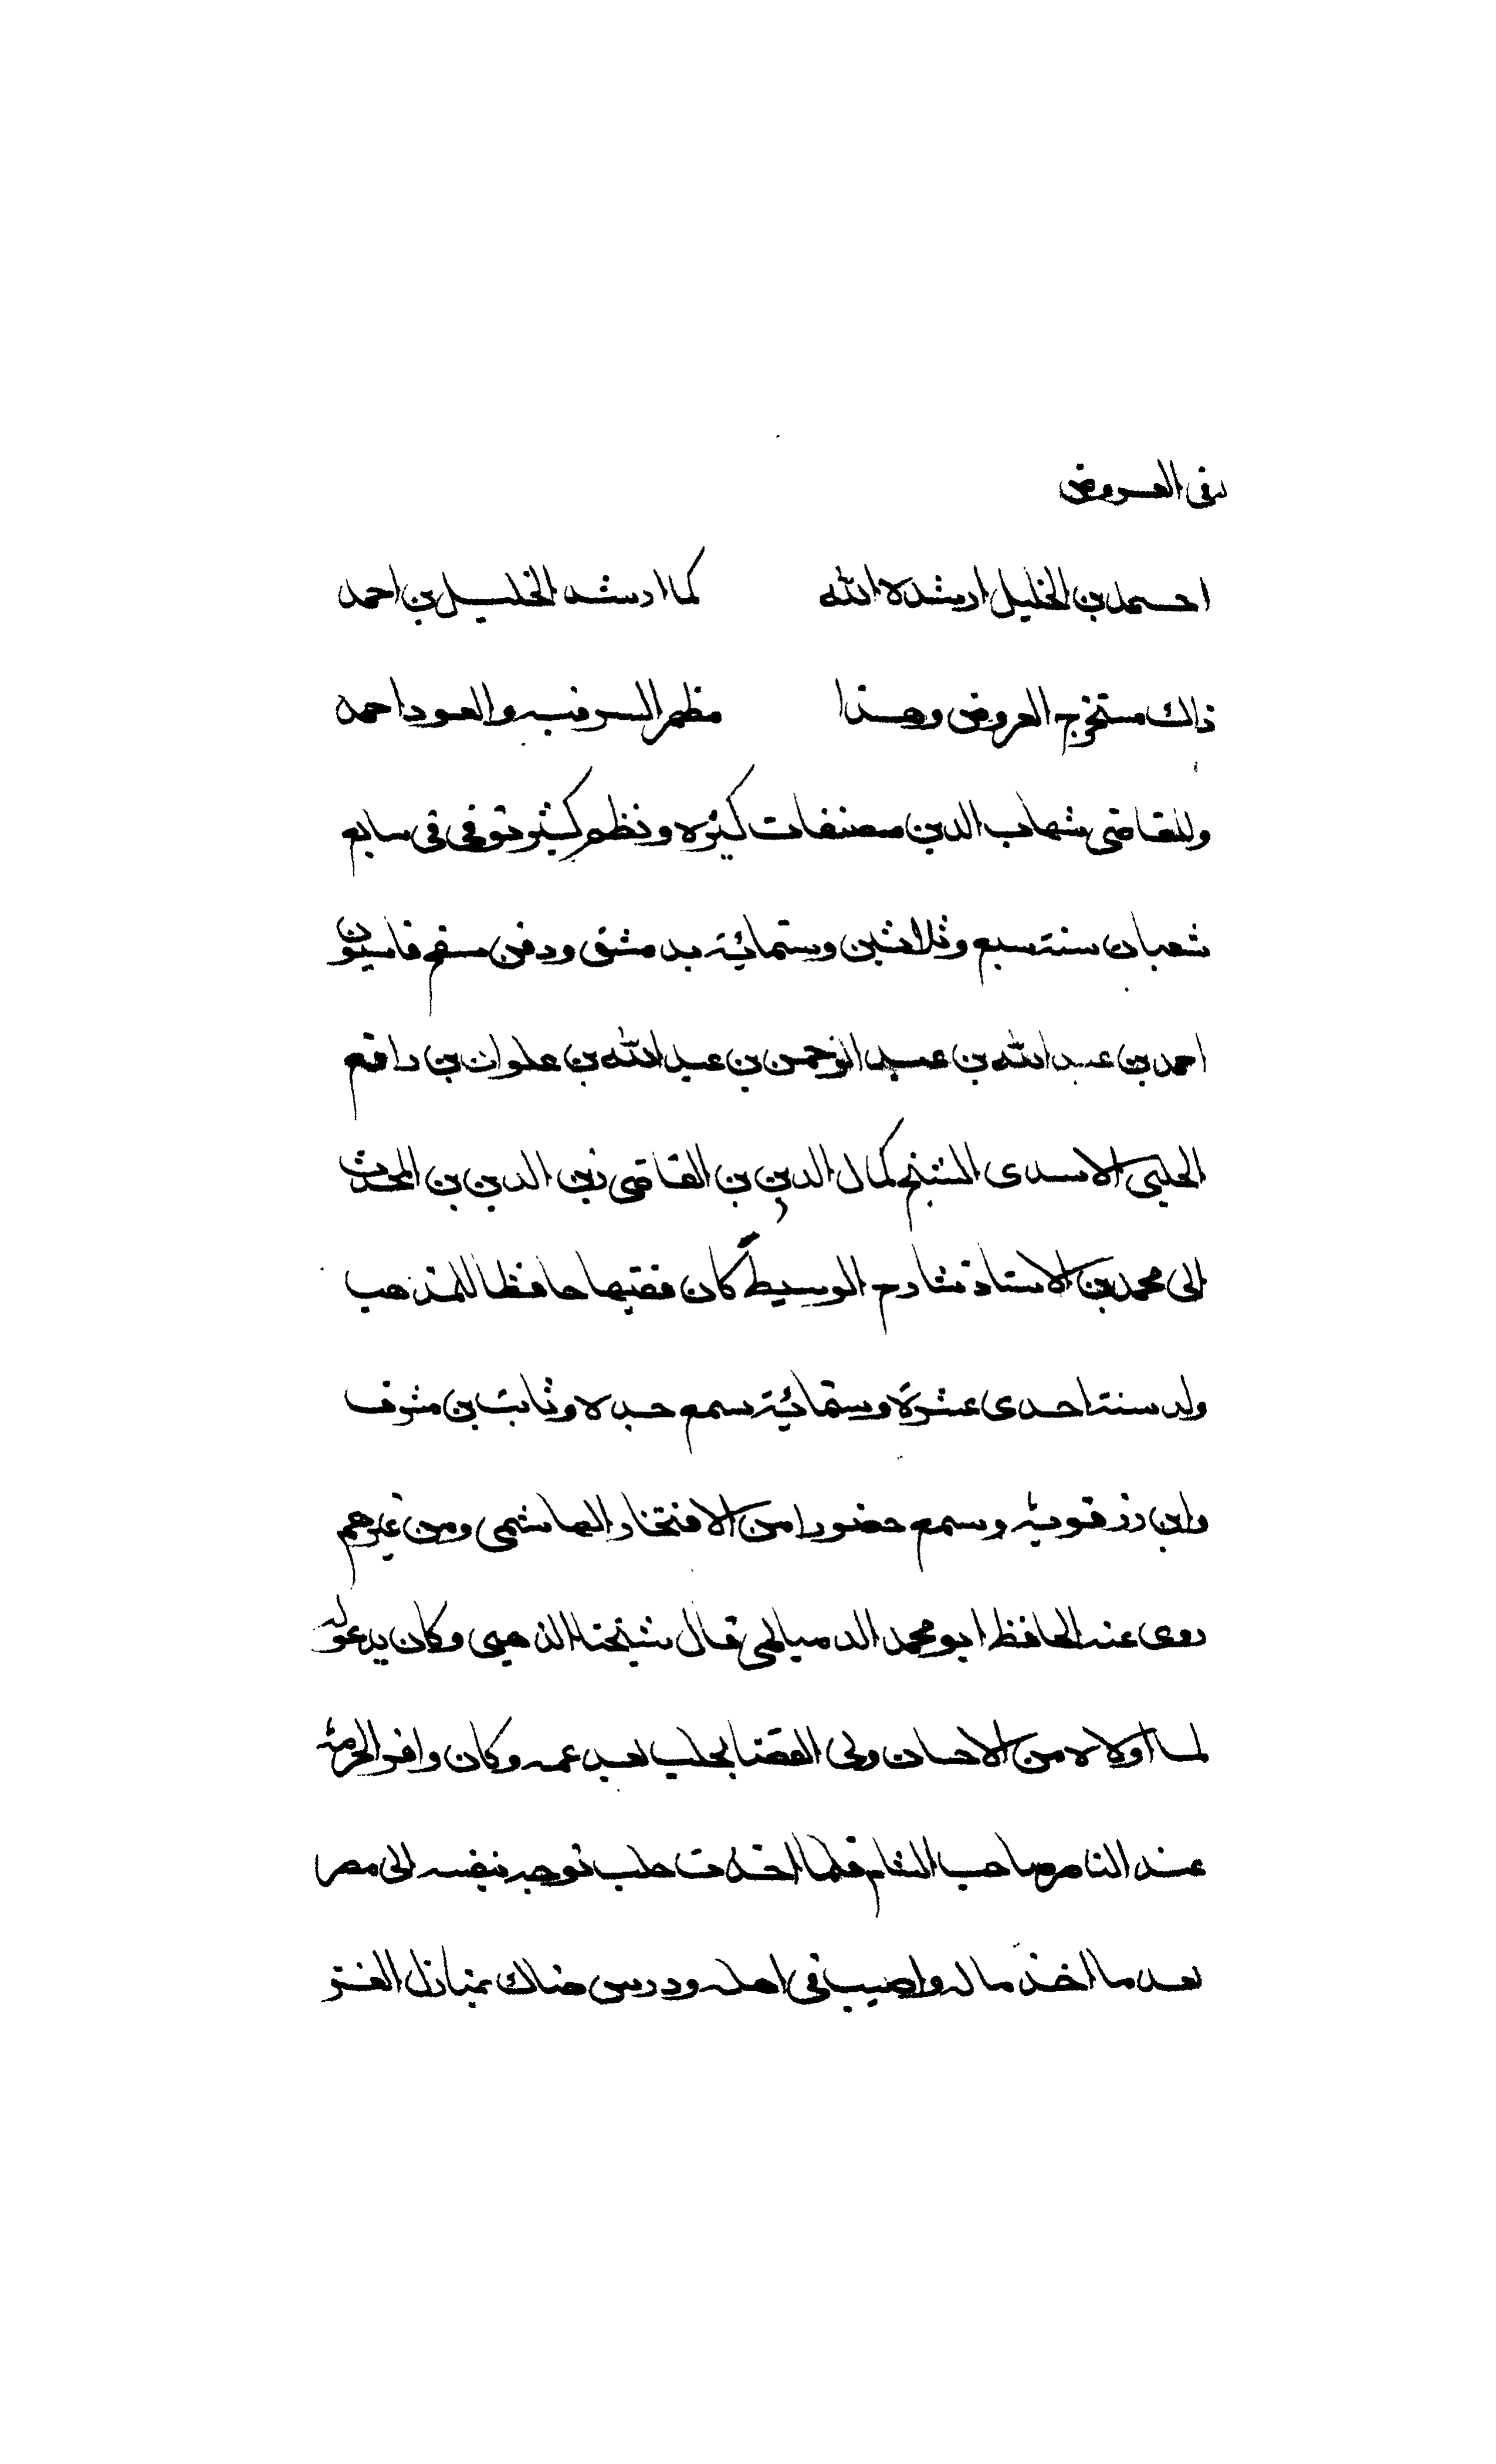 في العروض
احمد بن الخليل ارشده الله كما ارشد الخليل بن احمد
ذاك مستخرج العروض وهذا مظهر السر منه والعود احمد
وللقاضى شهاب الدين مصنفات كثيره ونظم كثير توفى فى سابع
شعبان سنة سبع وثلاثين وستمائة بدمشق ودفن بسفح قاسيون
احمد بن عبد الله بن عبد الرحمن بن عبد الله بن علوان بن رافع
الحلبى الاسدى الشيخ كمال الدين بن القاضى زين الدين بن المحدث
ابى محمد بن الاستاذ شارح الوسيط كان فقيها حافظا للمذهب
ولد سنة احدى عشرة وستمائة سمع جده وثابت بن مشرف
وابن روزبه وسمع حضورا من الافتخار الهاشمى ومن غيرهم
روى عنه الحافظ ابو محمد الدمياطى قال شيخنا الذهبى وكان يدعو له
لما اولاه من الاحسان ولى القضا بحلب بعد عمه وكان وافر الحرمة
عند الناصر صاحب الشام فلما اخذت حلب توجه بنفسه الى مصر
بعد ما اخذ ماله واصيب فى اهله ودرس هناك بمنازل العز